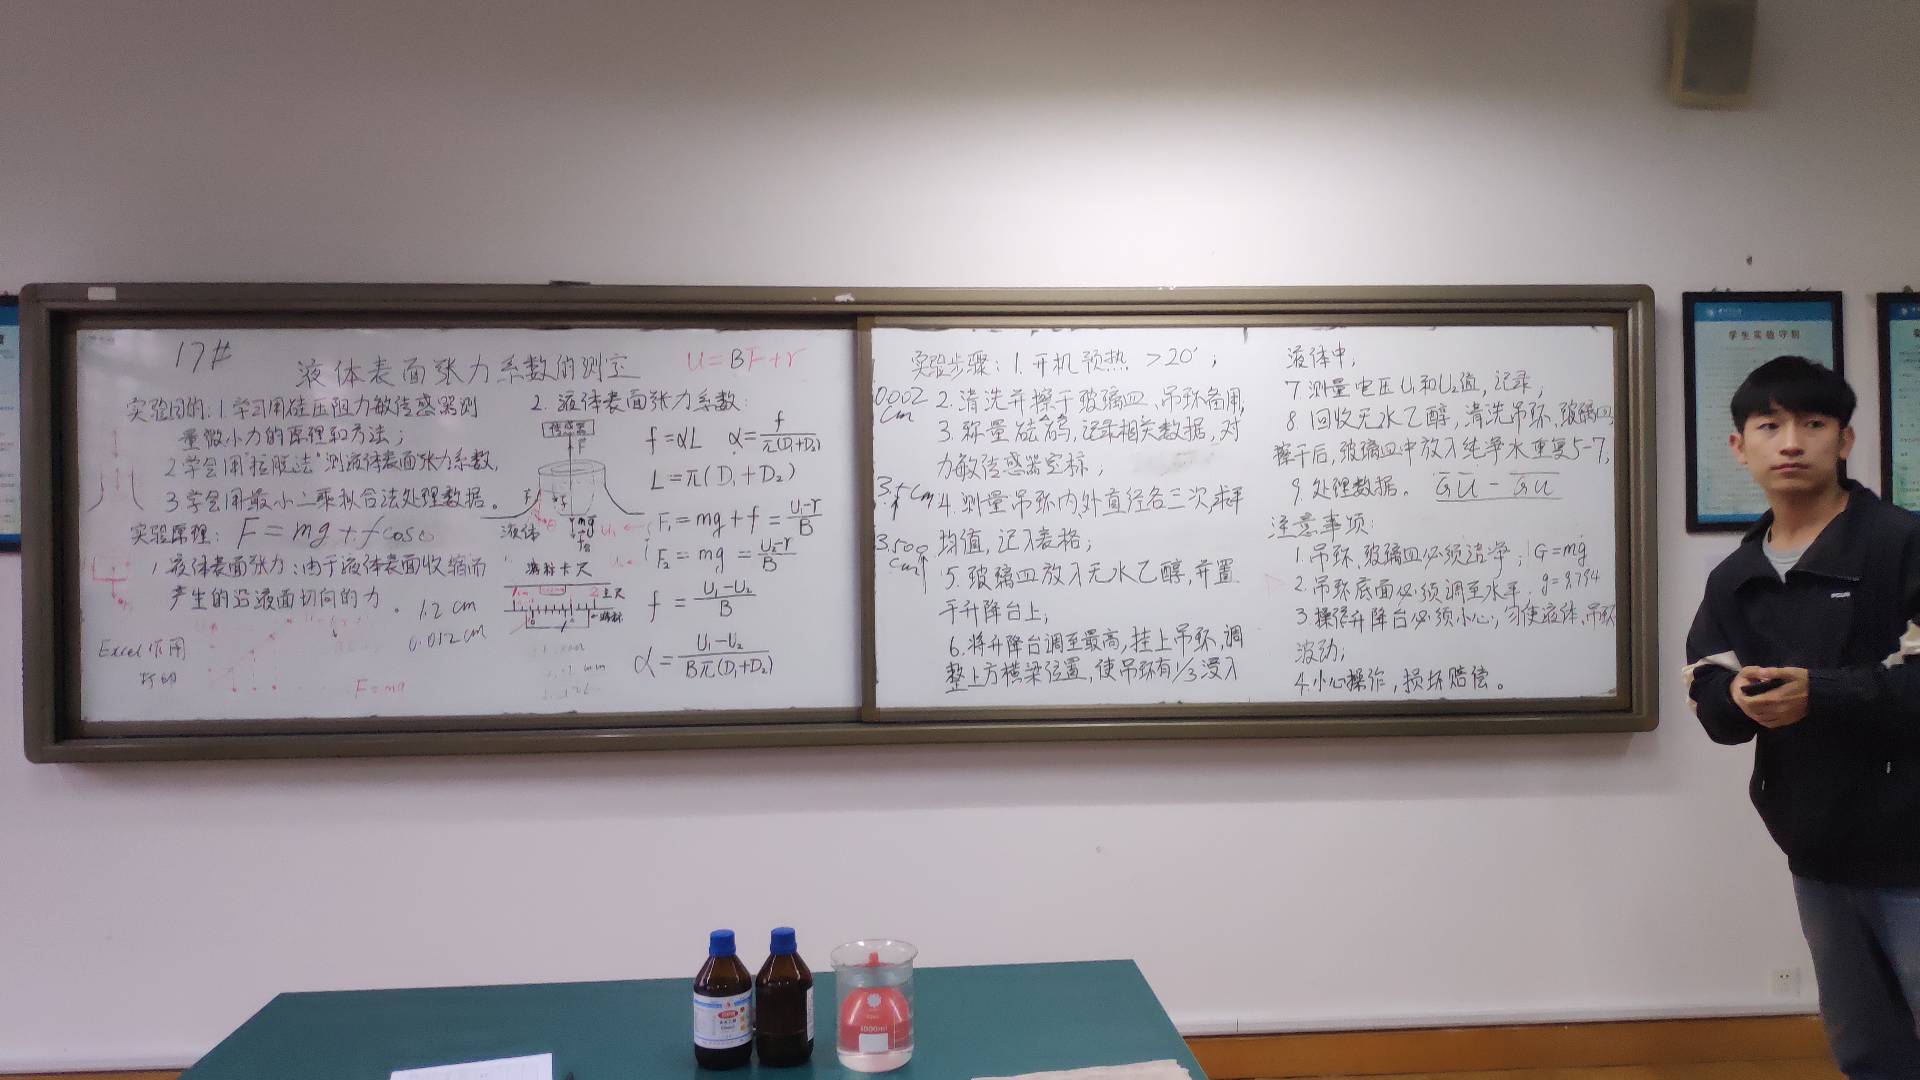 17#
液体表面张力系数的测定
U=BF+r
实验目的:1.学习用硅压阻力敏传感器测
量微小力的原理和方法;
2.学会用"拉脱法"测液体表面张力系数.
3.学会用最小二乘拟合法处理数据。
实验原理: F=mg+fcosθ
1.液体表面张力:由于液体表面收缩而
产生的沿液面切向的力。
1.2cm
0.012cm
Excel作图
打印
F=mg
2.液体表面张力系数:
传感器
F
液体
mg
游标卡尺
主尺
游标
f=αL α=f/π(D₁+D₂)
L=π(D₁+D₂)
U₁ F₁=mg+f=U₁-r/B
U₂ F₂=mg=U₂-r/B
f=U₁-U₂/B
α=U₁-U₂/Bπ(D₁+D₂)
实验步骤:1.开机预热>20′;
0.002
cm
2.清洗并擦干玻璃皿、吊环备用,
3.称量砝码,记录相关数据,对
力敏传感器定标;
3.5cm
4.测量吊环内外直径各三次求平
均值,记入表格;
3.500
cm
5.玻璃皿放入无水乙醇,并置
于升降台上;
6.将升降台调至最高,挂上吊环,调
整上方横梁位置,使吊环有1/3浸入
液体中;
7.测量电压U₁和U₂值,记录;
8.回收无水乙醇,清洗吊环、玻璃皿,
擦干后,玻璃皿中放入纯净水重复5-7;
9.处理数据。
注意事项:
1.吊环、玻璃皿必须洁净; G=mg
2.吊环底面必须调至水平. g=9.794
3.操作升降台必须小心,勿使液体、吊环
波动;
4.小心操作,损坏赔偿。
学生实验守则
1000ml